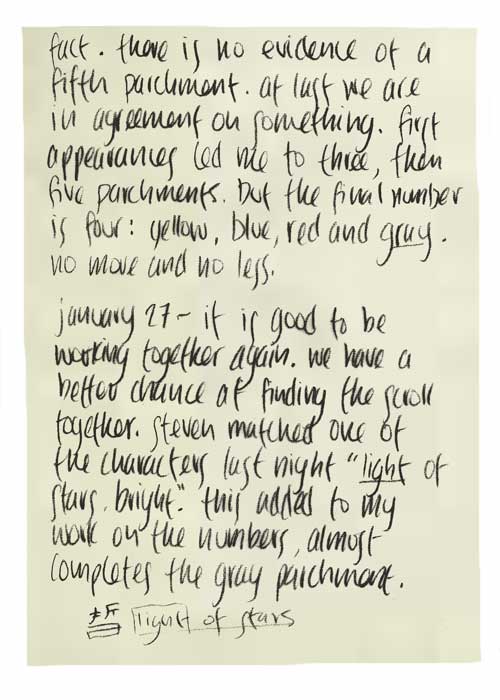 fact. there is no evidence of a
fifth parchment. at last we are
in agreement on something. first
appearances led me to three, then
five parchments. but the final number
is four: yellow, blue, red and gray.
no more and no less.
january 27 - it is good to be
working together again. we have a
better chance at finding the scroll
together. steven matched one of
the characters last night "light of
stars, bright". this added to my
work on the numbers, almost
completes the gray parchment.
light of stars